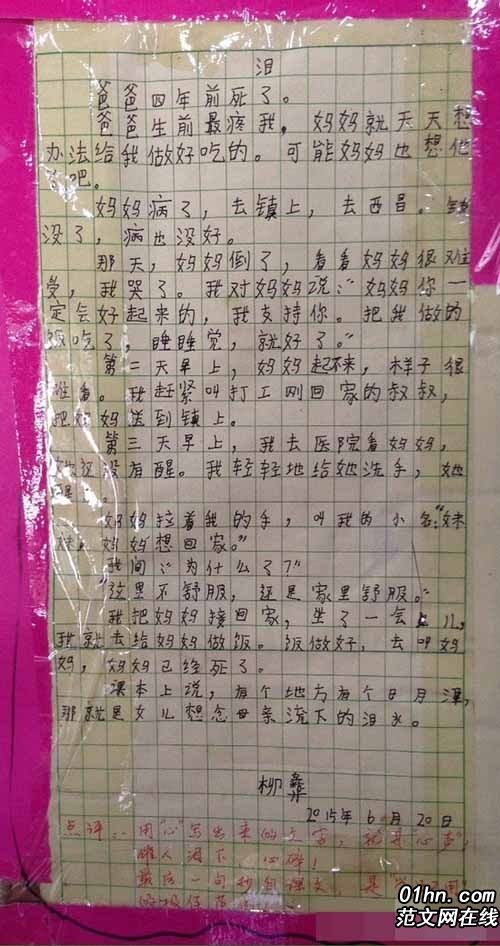 泪
爸爸四年前死了。
爸爸生前最疼我，妈妈就天天想
办法给我做好吃的。可能妈妈也想他
了吧。
妈妈病了，去镇上，去西昌。钱
没了，病也没好。
那天，妈妈倒了，看看妈妈很难
受，我哭了。我对妈妈说：“妈妈你一
定会好起来的，我支持你。把我做的
饭吃了，睡睡觉，就好了。”
第二天早上，妈妈起不来，样子很
难看。我赶紧叫打工刚回家的叔叔，
把妈妈送到镇上。
第三天早上，我去医院看妈妈，
她还没有醒。我轻轻地给她洗手，她
醒了。
妈妈拉着我的手，叫我的小名：“妹
妹，妈妈想回家。”
我问：“为什么了？”
“这里不舒服，还是家里舒服。”
我把妈妈接回家，坐了一会儿，
我就去给妈妈做饭。饭做好，去叫妈
妈，妈妈已经死了。
课本上说，有个地方有个日月潭，
那就是女儿想念母亲流下的泪水。
柳彝
2015年6月20日
点评：用“心”写出来的文字，就是“心声”，
催人泪下，心碎！
最后一句抄自课文，是
01hn.com
范文网在线